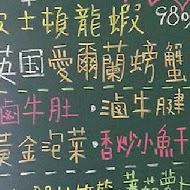 士頓龍蝦 989
英国愛爾蘭螃蟹
滷牛肚·滷牛腱
黃金泡菜·香炒小魚干